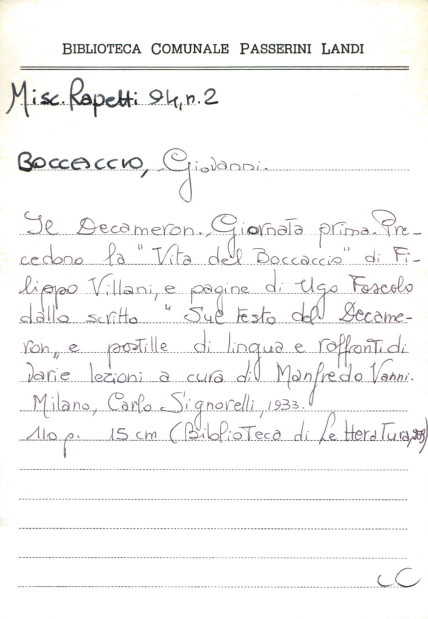 BIBLIOTECA COMUNALE PASSERINI LANDI
Misc. Rapetti 94, n. 2
BOCCACCIO, Giovanni.
Il Decameron. Giornata prima. Pre-
cedono la "Vita del Boccaccio" di Fi-
lippo Villani, e pagine di Ugo Foscolo
dallo scritto "Sul testo del Decame-
ron", e postille di lingua e raffronti di
varie lezioni a cura di Manfredo Vanni.
Milano, Carlo Signorelli, 1933.
110 p. 15 cm (Biblioteca di Letteratura,
CC